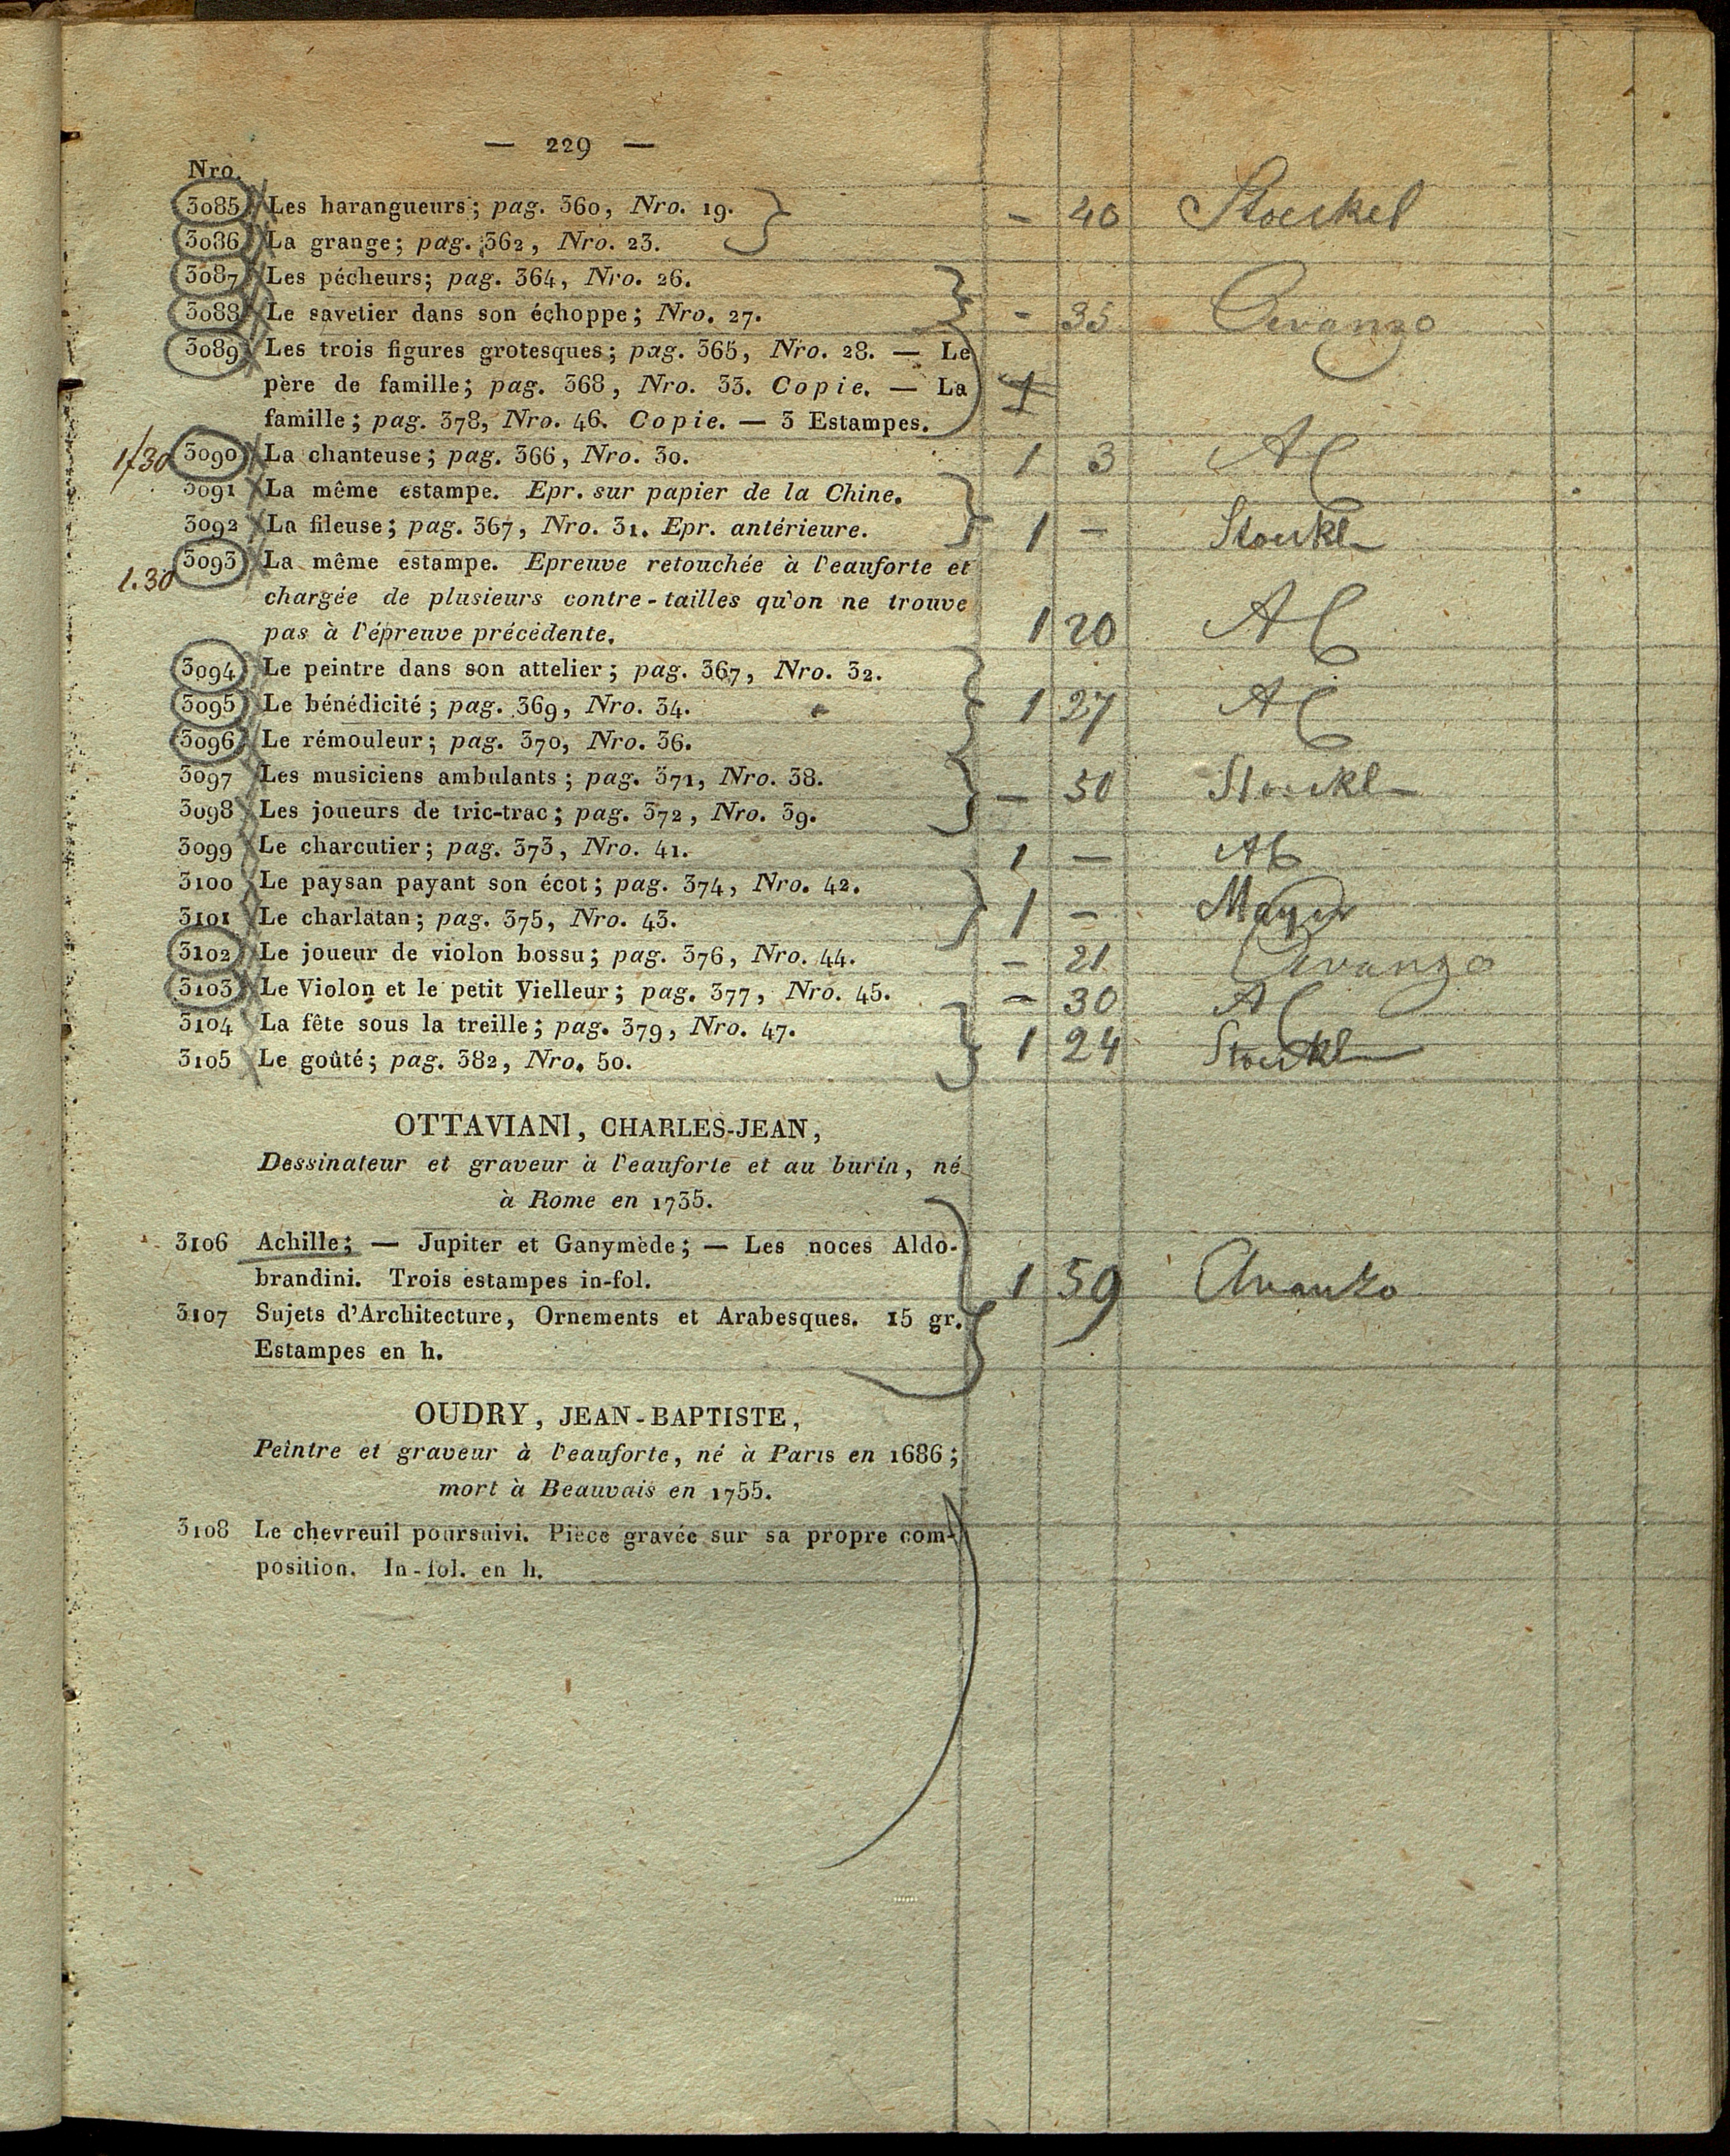 — 229 —
Nro.
3085 Les harangueurs; pag. 360, Nro. 19. — 40 Stoeckel
3086 La grange; pag. 362, Nro. 23.
3087 Les pécheurs; pag. 364, Nro. 26.
3088 Le savetier dans son échoppe; Nro. 27. — 35 Avanzo
3089 Les trois figures grotesques; pag. 365, Nro. 28. — Le
père de famille; pag. 368, Nro. 33. Copie. — La
famille; pag. 378, Nro. 46. Copie. — 3 Estampes.
1/30 3090 La chanteuse; pag. 366, Nro. 30. 1 3 AC
3091 La même estampe. Epr. sur papier de la Chine.
3092 La fileuse; pag. 367, Nro. 31. Epr. antérieure. 1 — Stoeckl
1.30 3093 La même estampe. Epreuve retouchée à l'eauforte et
chargée de plusieurs contre-tailles qu'on ne trouve
pas à l'épreuve précédente. 1 20 AC
3094 Le peintre dans son attelier; pag. 367, Nro. 32.
3095 Le bénédicité; pag. 369, Nro. 34. 1 27 AC
3096 Le rémouleur; pag. 370, Nro. 36.
3097 Les musiciens ambulants; pag. 371, Nro. 38. — 50 Stoeckl
3098 Les joueurs de tric-trac; pag. 372, Nro. 39.
3099 Le charcutier; pag. 373, Nro. 41. 1 — AC
3100 Le paysan payant son écot; pag. 374, Nro. 42.
3101 Le charlatan; pag. 375, Nro. 43. 1 — Mayer
3102 Le joueur de violon bossu; pag. 376, Nro. 44. — 21 Avanzo
3103 Le Violon et le petit Vielleur; pag. 377, Nro. 45. — 30 AC
3104 La fête sous la treille; pag. 379, Nro. 47.
3105 Le goûté; pag. 382, Nro. 50. 1 24 Stoeckl
OTTAVIANI, CHARLES-JEAN,
Dessinateur et graveur à l'eauforte et au burin, né
à Rome en 1735.
3106 Achille; — Jupiter et Ganymède; — Les noces Aldo-
brandini. Trois estampes in-fol. 1 59 Avanzo
3107 Sujets d'Architecture, Ornements et Arabesques. 15 gr.
Estampes en h.
OUDRY, JEAN-BAPTISTE,
Peintre et graveur à l'eauforte, né à Paris en 1686;
mort à Beauvais en 1755.
3108 Le chevreuil poursuivi. Pièce gravée sur sa propre com-
position. In-fol. en h.